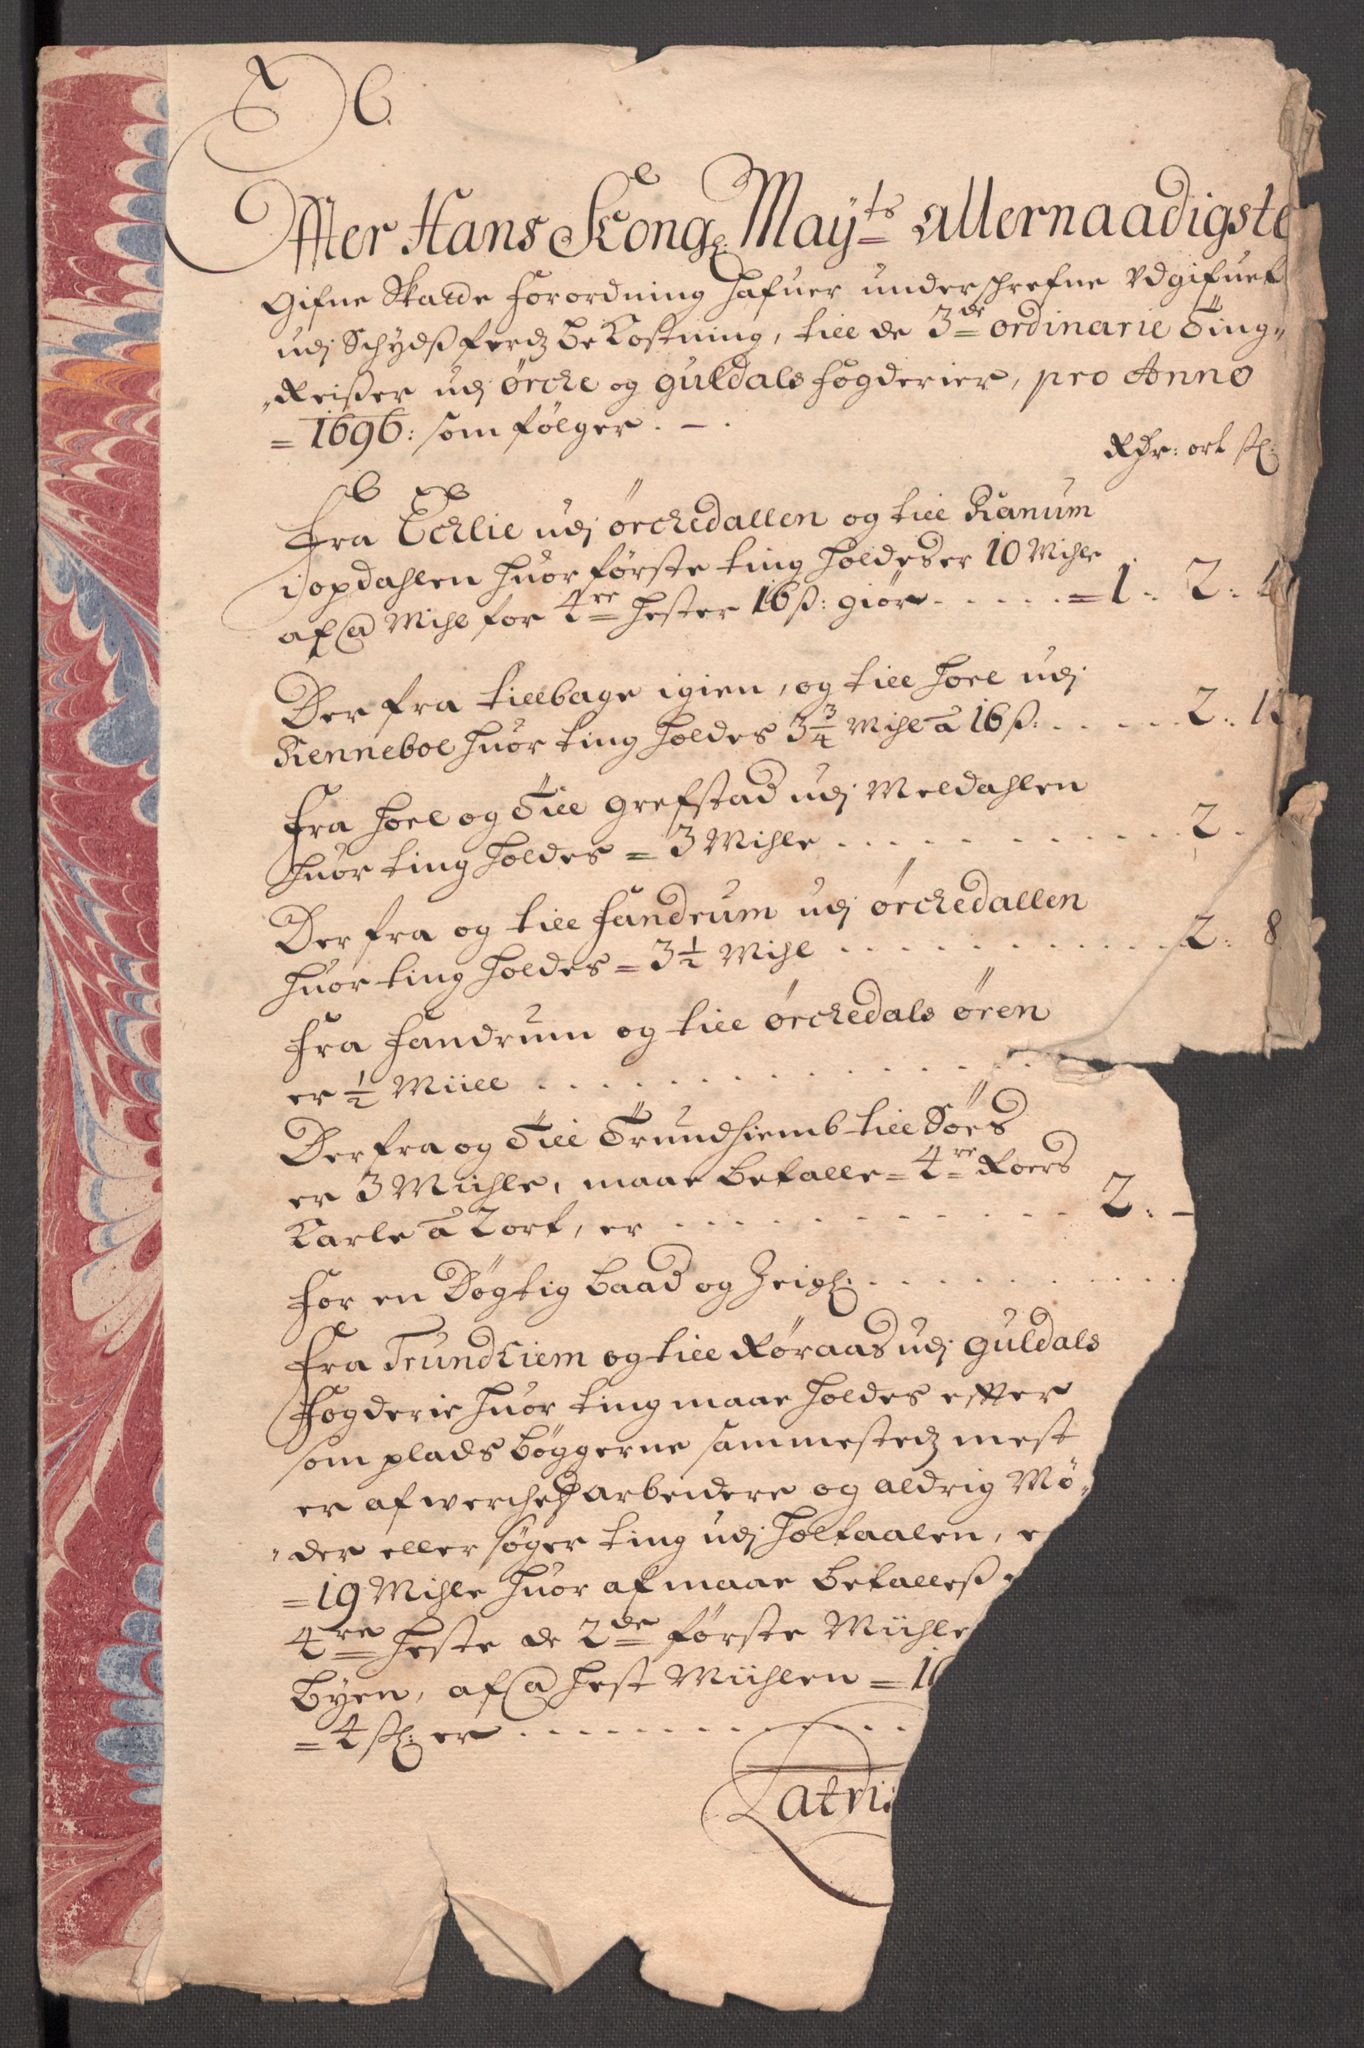 Effter Hans Kong: Mayts allernaadigste
Gifne Skatte forordning hafuer underschrefne Udgifuet
udj Schydsferdz Bekostning, till de 3de ordinarie Ting-
Reiser udj Ørche og Guldals fogderier, pro Anno
= 1696: som følger . - .
Rdr: ort sk:
Fra Echlie udj Ørchedallen og till Ranum
i Opdahlen huor første ting holdes er 10 Mihle
af @ Mihl for 4re hester 16 s: giør . . . . . = 1. 2.
Der fra tillbage igien, og till Hoel udj
Renneboe huor ting holdes 3 3/4 Mihl a 16 s: . . . . . 2:
Fra Hoel og Till Grefstad udj Meldahlen
huor ting holdes = 3 Mihle . . . . . 2.
Der fra og till Fandrum udj Ørchedallen
huor ting holdes = 3 1/2 Mihl . . . . . 2: 8
Fra Fandrum og till Ørchedals Øren
er 1/2 Miill . . . . .
Der fra og Till Trundhiemb till Søes
er 3 Miihle, maae betalle = 4re Roers
Karle a 2 ort, er . . . . . 2. -
For en Døgtig Baad og Zeigl: . . . . .
Fra Trundhiem og till Røraas udj Guldals
Fogderie huor ting maae holdes effter
som plads Bøggerne sammestedz mest
er af werchetz arbeidere og aldrig Mø-
-der eller søger ting udj Holtaalen, e
= 19 Mihle huor af maae betalless
4re heste de 2de første Miihle
Byen, af @ hest Miihlen = 1
= 4 sk: er . . . . .
Latri